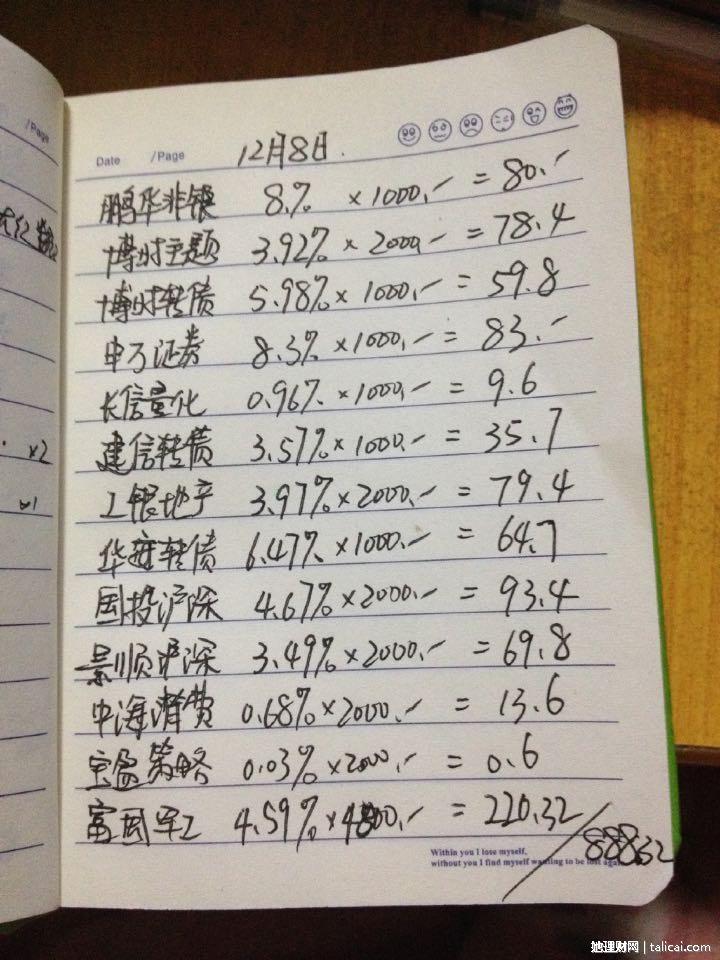 /Page
Date /Page 12月8日.
鹏华非银 8.% ×1000.- = 80.-
博时主题 3.92% × 2000.- = 78.4
博时转债 5.98% × 1000.- = 59.8
申万证券 8.3% ×1000.- = 83.-
长信量化 0.96% ×1000.- = 9.6
建信转债 3.57% ×1000.- = 35.7
×2
工银地产 3.97% ×2000.- = 79.4
华安转债 6.47% ×1000.- = 64.7
国投沪深 4.67% ×2000.- = 93.4
景顺沪深 3.49% ×2000.- = 69.8
中海消费 0.68% ×2000.- = 13.6
宝盈策略 0.03% ×2000.- = 0.6
富国军工 4.59% ×4800.- = 220.32
/888.32
Within you I lose myself,
without you I find myself wanting to be lost again
她理财网 | talicai.com